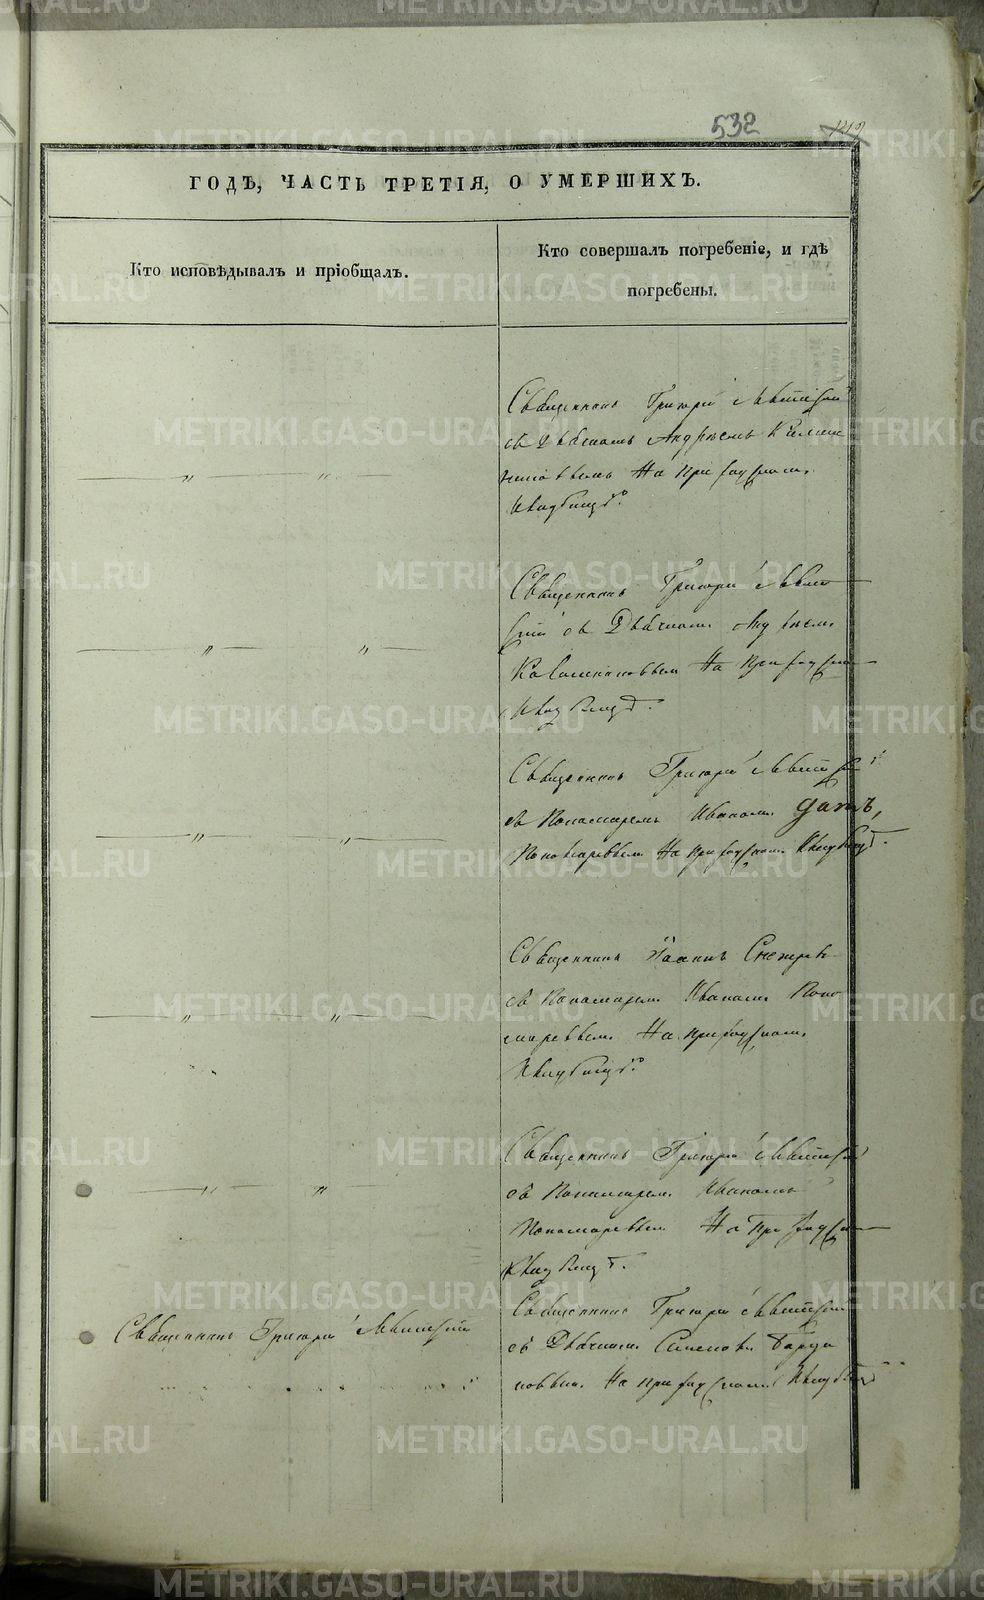 532
ГОДѢ, ЧАСТЬ ТРЕТІЯ, О УМЕРШИХЪ.
Кто исповѣдывалъ и пріобщалъ.
Кто совершалъ погребеніе, и гдѣ
погребены.
Священникъ Григорій Левитскій
съ Дьячкомъ Андреемъ
На приходскомъ
Кладбищѣ.
Священникъ Григорій Левит
скій съ Дьячкомъ Андреемъ
На приходском
Кладбищѣ.
Священникъ Григорій Левитскій
съ Пономаремъ Иваномъ
Пономаревымъ На приходскомъ Кладбищѣ.
Священникъ Іоаннъ
съ Пономаремъ Иваномъ Поно
маревымъ На приходскомъ
Кладбищѣ.
Священникъ Григорій Левитскій
съ Пономаремъ Иваномъ
Пономаревымъ На приходском
Кладбищѣ.
Священникъ Григорій Левитскій
Священникъ Григорій Левитскій
съ Дьячкомъ
На приходскомъ Кладбищѣ
METRIKI.GASO-URAL.RU